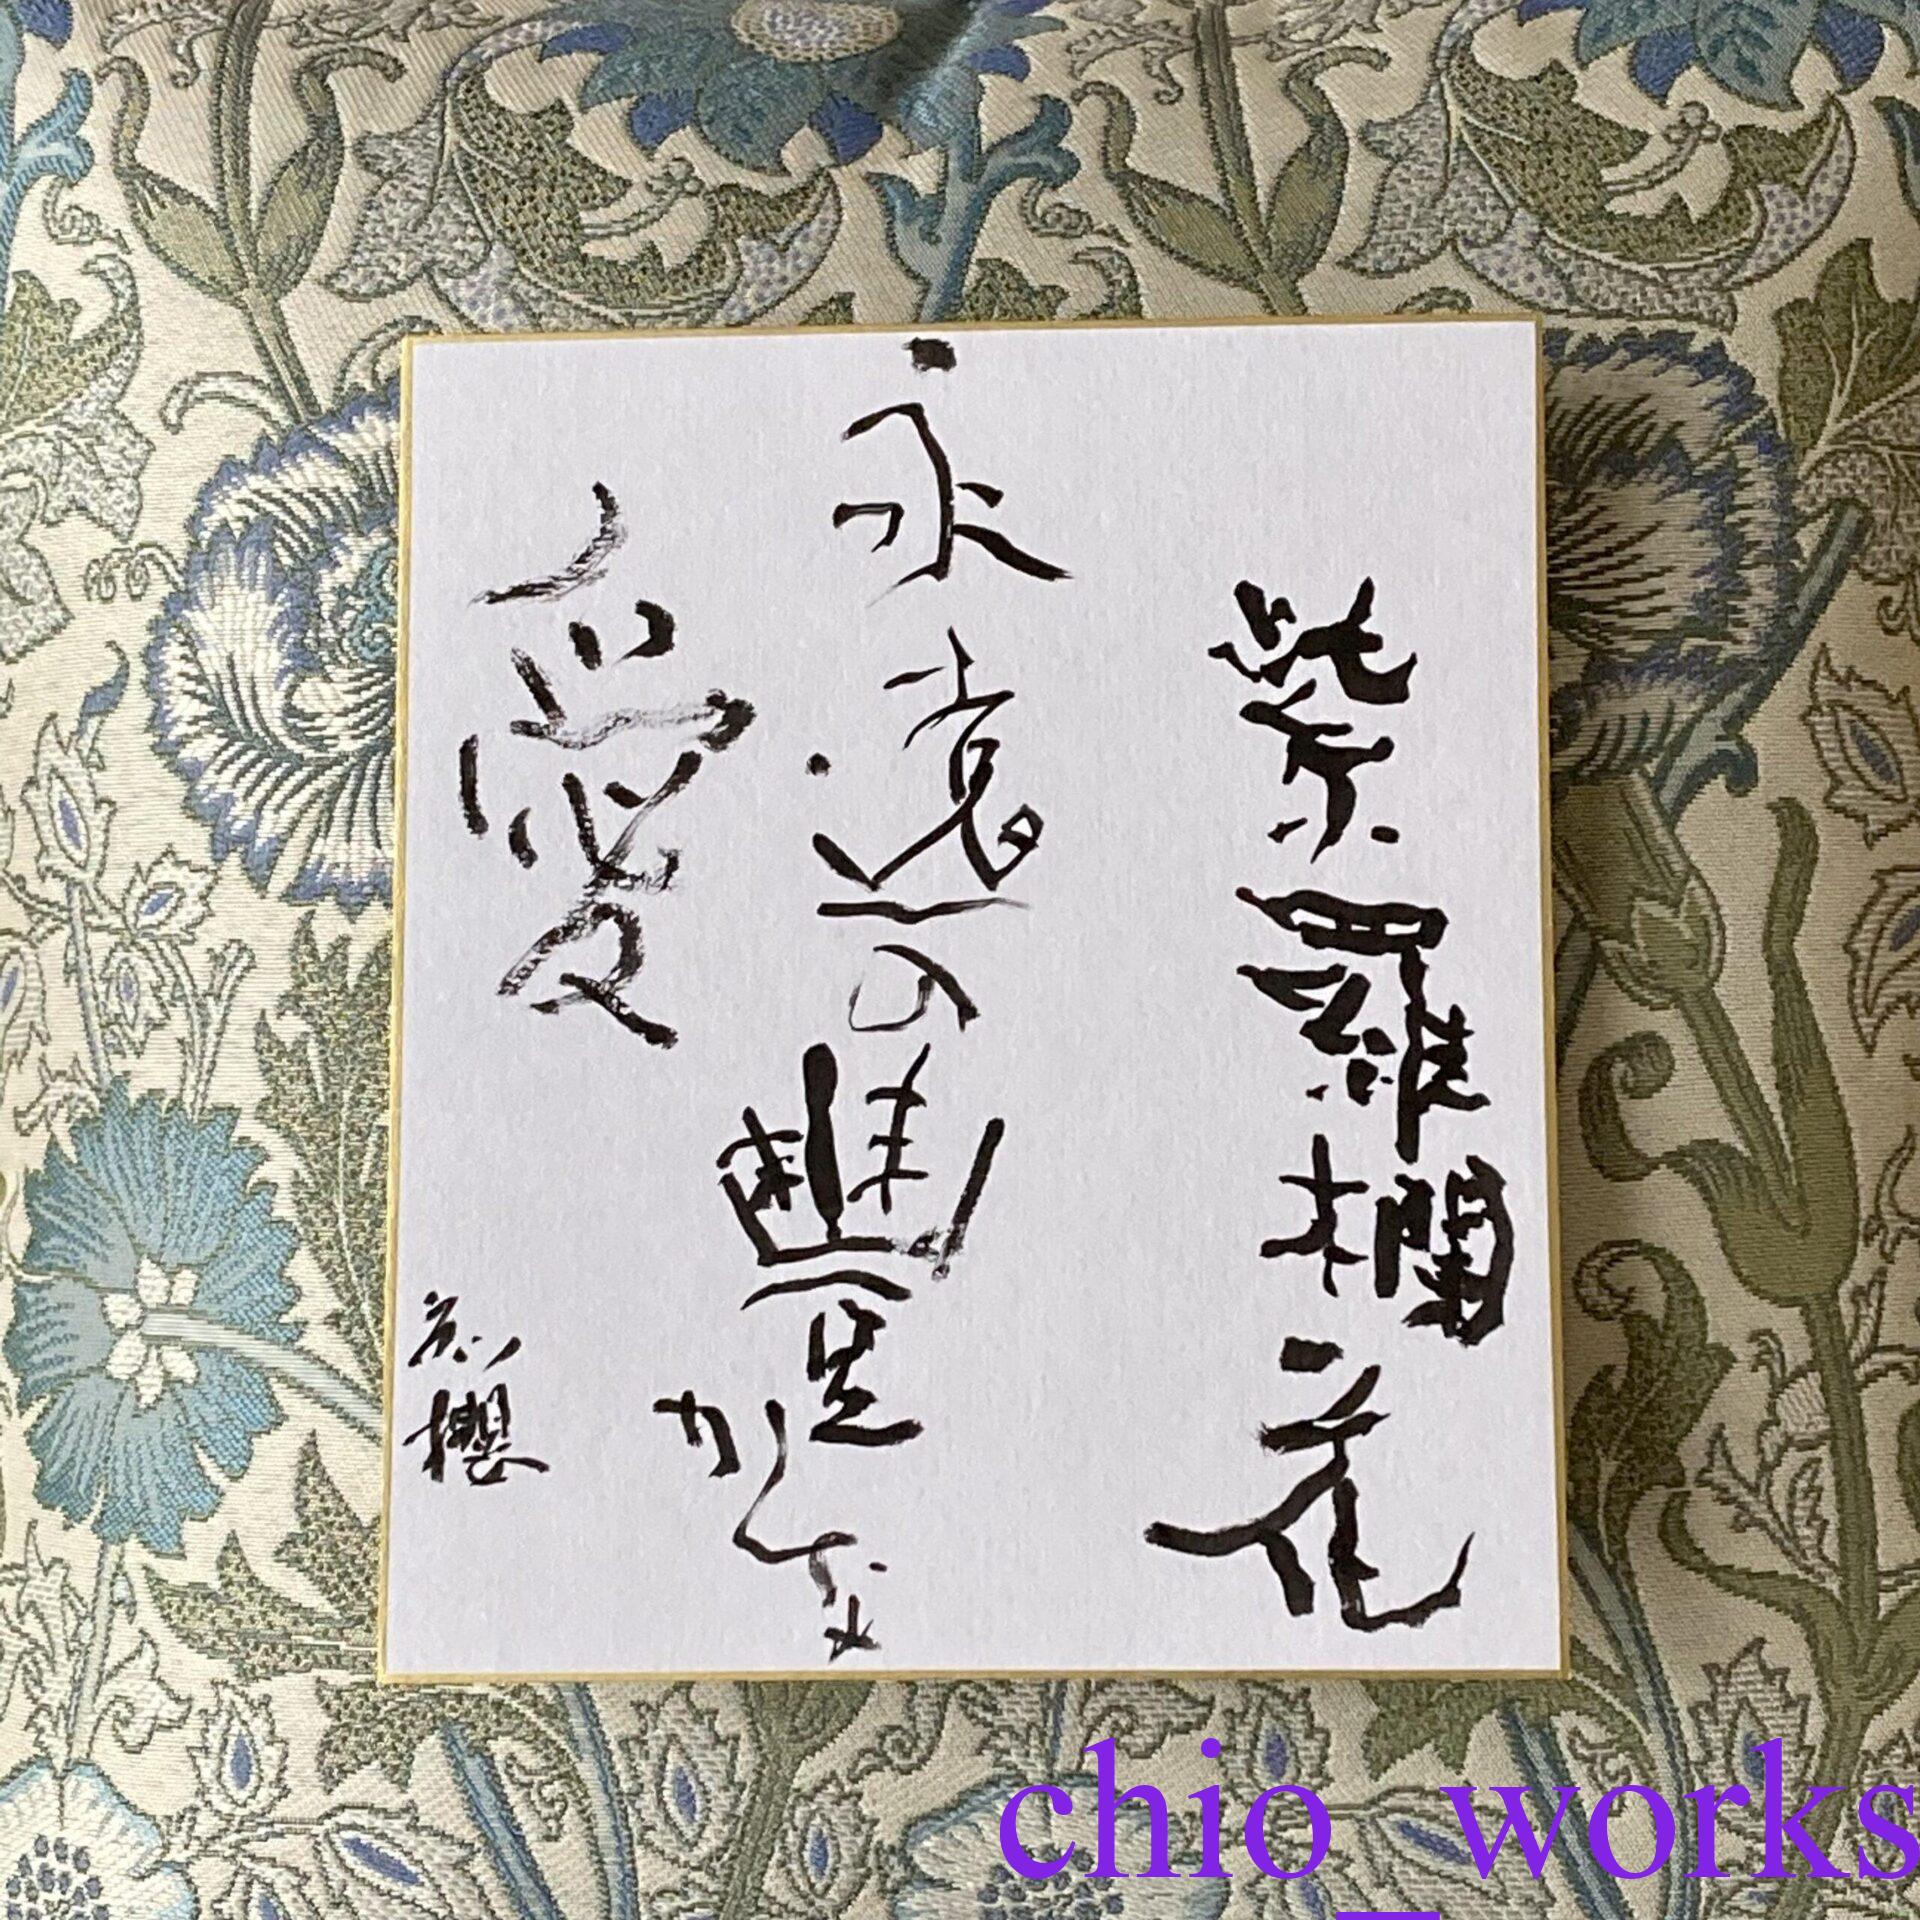 紫羅欄花
永遠の豊かな
愛
chio_works